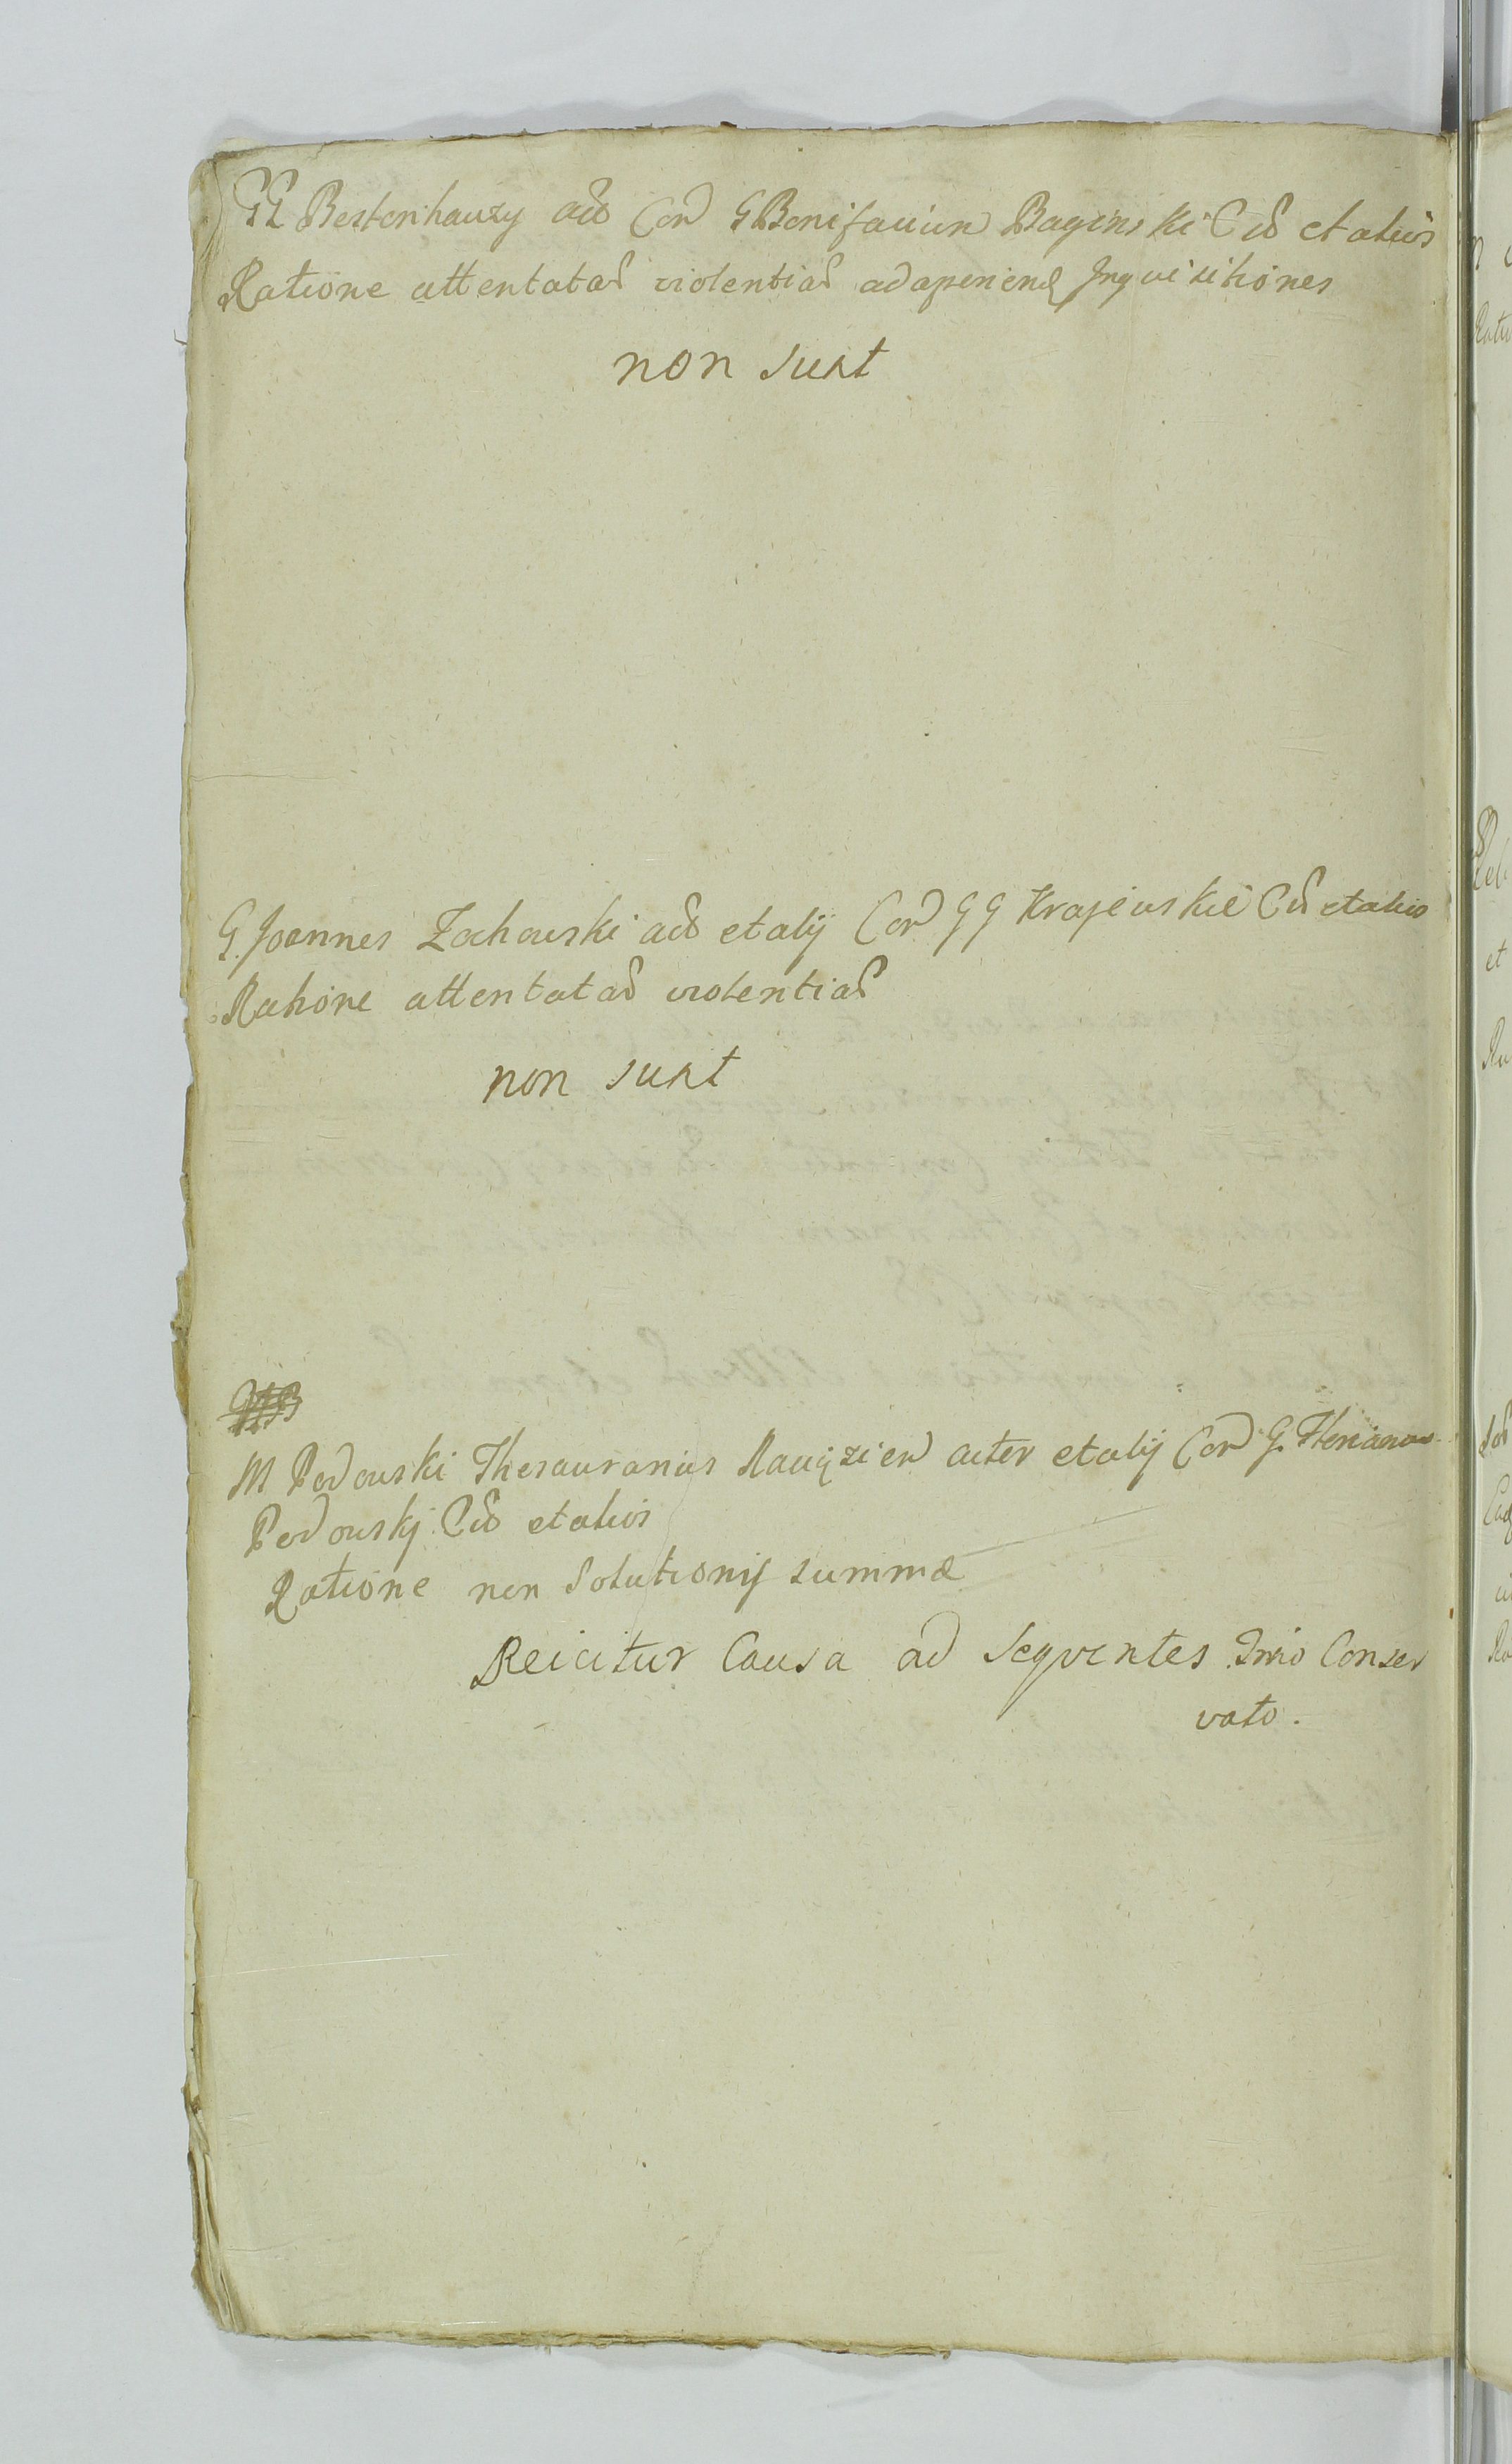 GG Bestenhauzy act Con G Bonifacium Baginski Cit et alios
Ratione attentatae violentiae adaperiend Inquisitiones
non sunt
G. Joannes Zochowski act et alij Con GG Krajewskie Cit et alios
Ratione attentatae violentiae
non sunt
M Pedowski Thesaurarius Raugzien acter et alij Con G.
Pedowskj Cit et alios
Ratione non Solutionis summae
Reicitur Causa ad Sequentes Tmio Conser
vato.